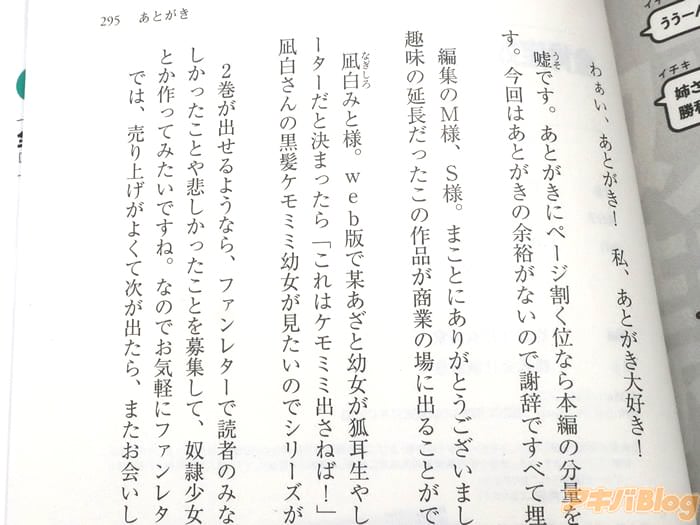 295 あとがき
わぁい、あとがき! 私、あとがき大好き!
嘘です。あとがきにページ割く位なら本編の分量を
うそ
す。今回はあとがきの余裕がないので謝辞ですべて埋
編集のM様、S様。まことにありがとうございまし
趣味の延長だったこの作品が商業の場に出ることがで
凪白みと様。web版で某あざと幼女が狐耳生やし
なぎしろ
ーターだと決まったら「これはケモミミ出さねば!」
凪白さんの黒髪ケモミミ幼女が見たいのでシリーズが
2巻が出せるようなら、ファンレターで読者のみな
しかったことや悲しかったことを募集して、奴隷少女
とか作ってみたいですね。なのでお気軽にファンレタ
では、売り上げがよくて次が出たら、またお会いし
イチキ
ううーん
イチキ
姉さ
勝利
アキバBlog